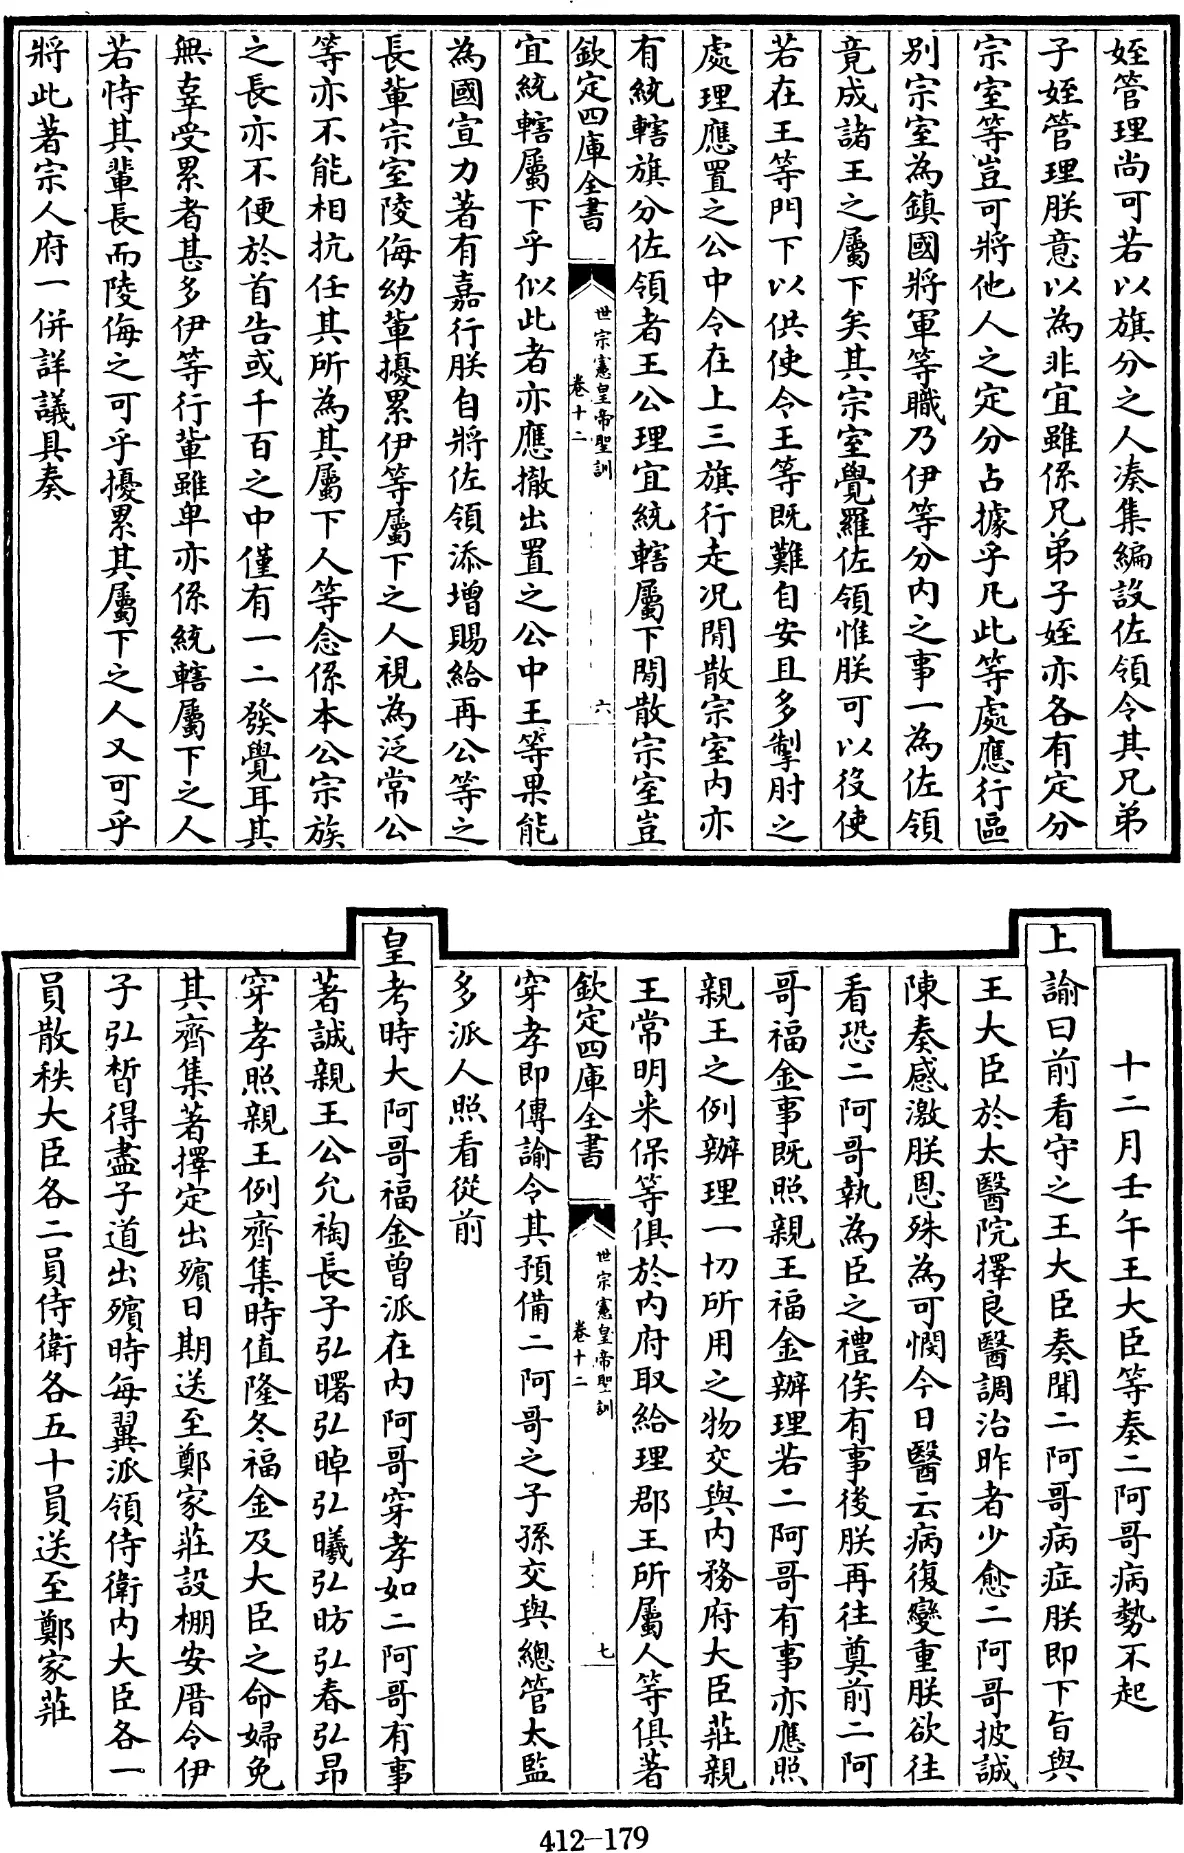 姪管理尚可若以旗分之人湊集編設佐領令其兄弟
子姪管理朕意以為非宜雖係兄弟子姪亦各有定分
宗室等豈可將他人之定分占據乎凡此等處應行區
别宗室為鎮國將軍等職乃伊等分内之事一為佐領
竟成諸王之屬下矣其宗室覺羅佐領惟朕可以役使
若在王等門下以供使令王等既難自安且多掣肘之
處理應置之公中令在上三旗行走况閒散宗室内亦
有統轄旗分佐領者王公理宜統轄屬下閒散宗室豈
欽定四庫全書
世宗憲皇帝聖訓
卷十二
六
宜統轄屬下乎似此者亦應撤出置之公中王等果能
為國宣力著有嘉行朕自將佐領添增賜給再公等之
長輩宗室陵侮幼輩擾累伊等屬下之人視為泛常公
等亦不能相抗任其所為其屬下人等念係本公宗族
之長亦不便於首告或千百之中僅有一二發覺耳其
無辜受累者甚多伊等行輩雖卑亦係統轄屬下之人
若恃其輩長而陵侮之可乎擾累其屬下之人又可乎
將此著宗人府一併詳議具奏
十二月壬午王大臣等奏二阿哥病勢不起
上諭曰前看守之王大臣奏聞二阿哥病症朕即下旨與
王大臣於太醫院擇良醫調治昨者少愈二阿哥披誠
陳奏感激朕恩殊為可憫今日醫云病復變重朕欲往
看恐二阿哥執為臣之禮俟有事後朕再往奠前二阿
哥福金事既照親王福金辦理若二阿哥有事亦應照
親王之例辦理一切所用之物交與内務府大臣莊親
王常明来保等俱於内府取給理郡王所屬人等俱著
欽定四庫全書
世宗憲皇帝聖訓
卷十二
七
穿孝即傳諭令其預備二阿哥之子孫交與總管太監
多派人照看從前
皇考時大阿哥福金曾派在内阿哥穿孝如二阿哥有事
著誠親王公允裪長子弘曙弘晫弘曦弘昉弘春弘昂
穿孝照親王例齊集時值隆冬福金及大臣之命婦免
其齊集著擇定出殯日期送至鄭家莊設棚安厝令伊
子弘晳得盡子道出殯時每翼派領侍衛内大臣各一
員散秩大臣各二員侍衛各五十員送至鄭家莊
412-179